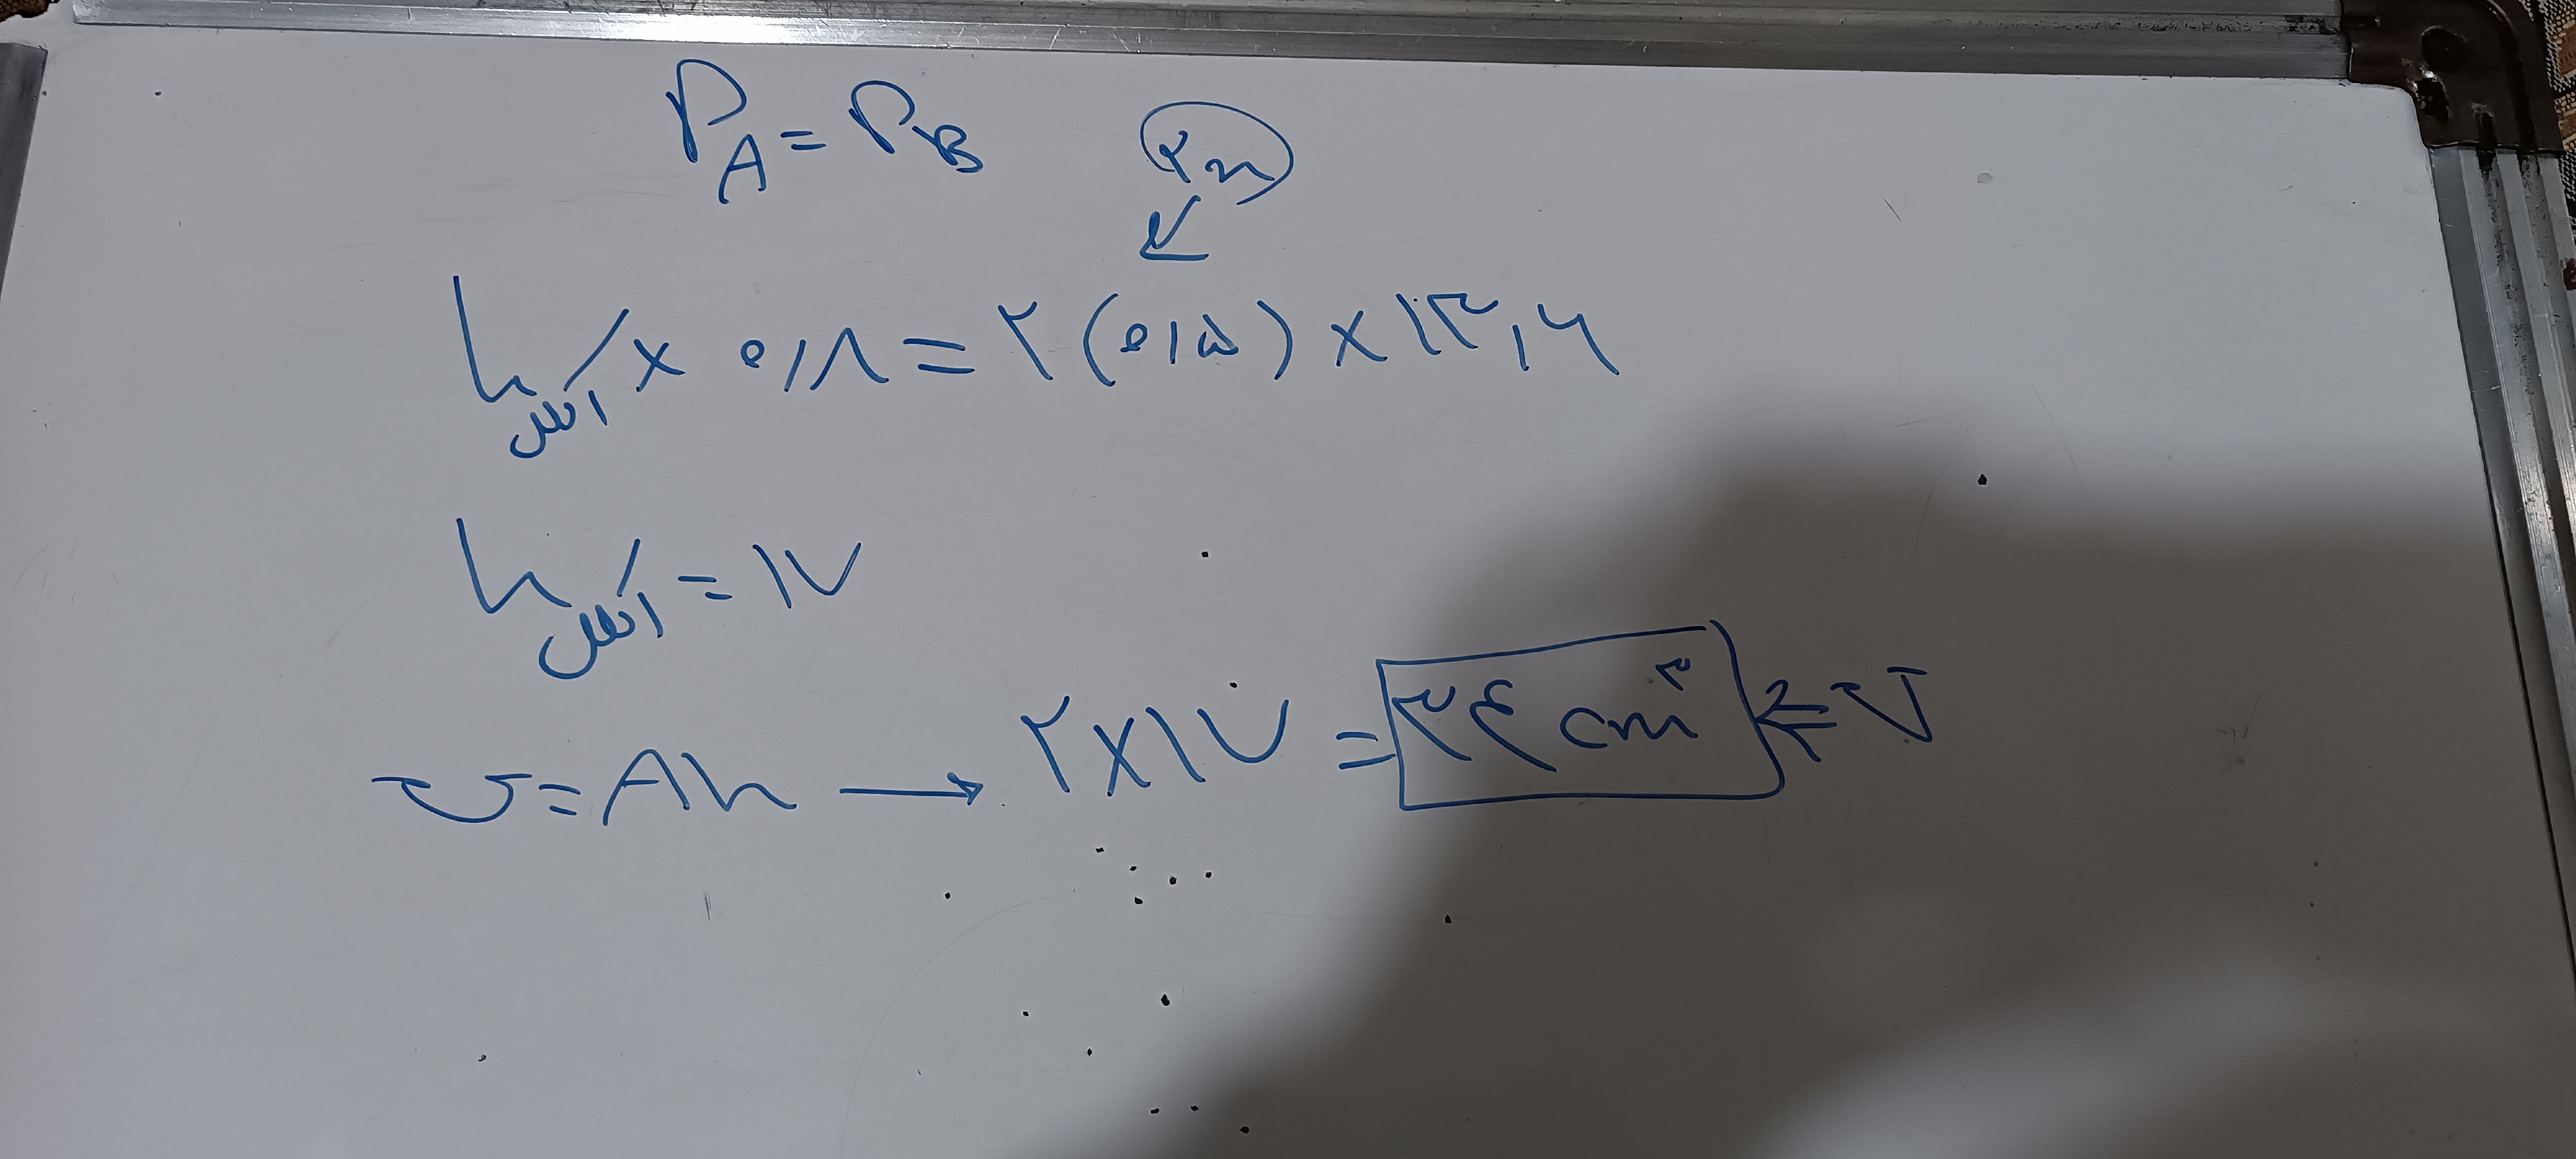 P_A = P_B
۲x
h_الکل × ۰٫۸ = ۲(۰٫۵) × ۱۳٫۶
h_الکل = ۱۷
V = Ah → ۲×۱۷ = ۳۴ cm³ ⇐ V